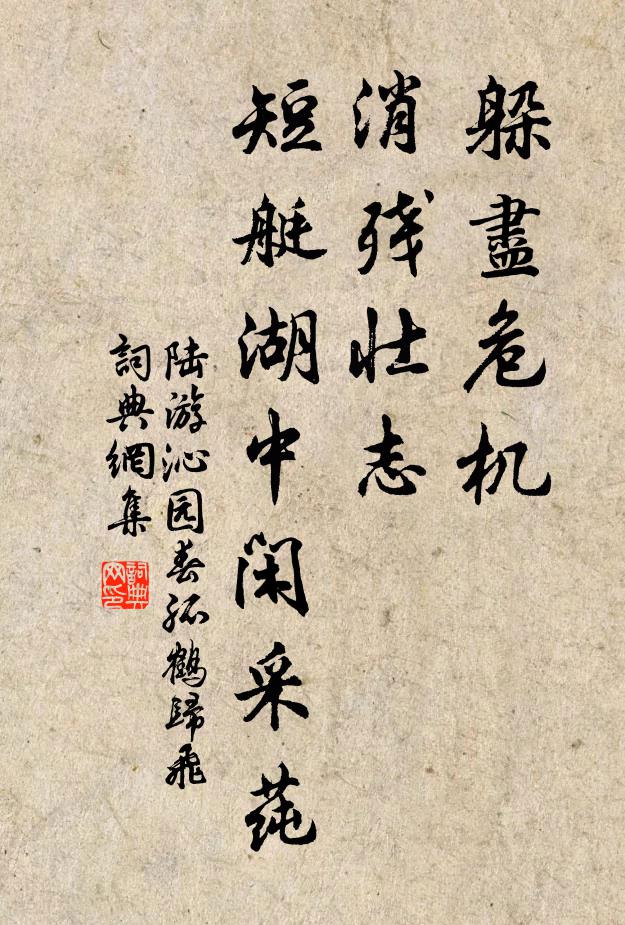 躲盡危机
消残壮志
短艇湖中閑采莼
陆游沁园春孤鶴歸飛
詞典網集
詞典网印